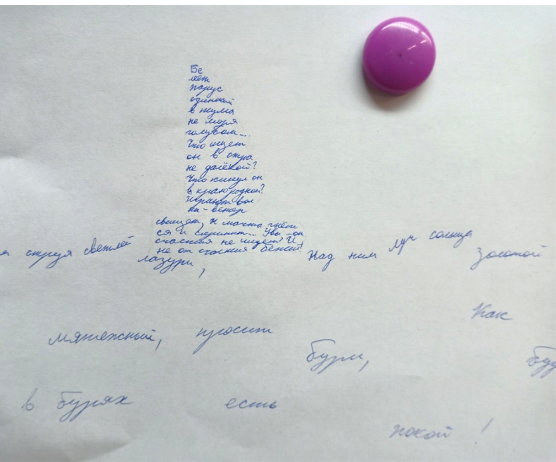 Бе
леет
парус
одинокий
в тума
не моря
голубом...
Что ищет
он в стра
не далёкой?
Что кинул он
в краю родном?
Играют вол
ны - ветер
свищет, И мачта гнёт
ся и скрипит... Увы - он
счастия не ищет И
не от счастия бежит
струя светлей
лазури,
Над ним луч солнца золотой
мятежный, просит бури,
Как буд
в бурях есть покой!